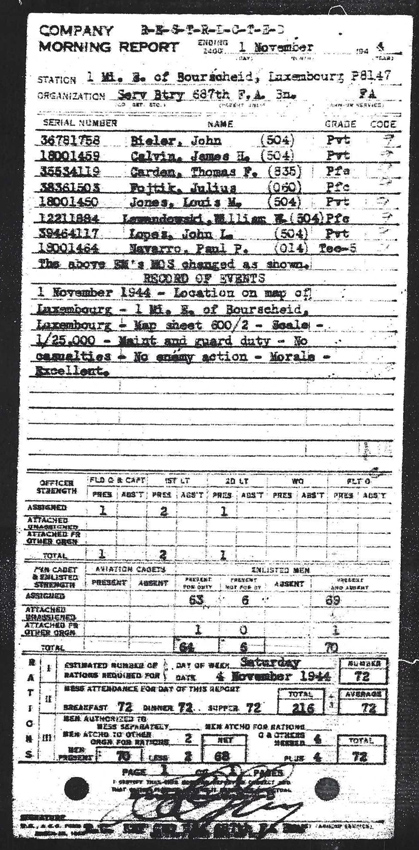 COMPANY R-E-S-T-R-I-C-T-E-D
MORNING REPORT ENDING 2400 1 November 194 4
STATION 1 Mi. E. of Bourscheid, Luxembourg P8147
ORGANIZATION Serv Btry 687th F.A. Bn. FA
SERIAL NUMBER NAME GRADE CODE
36781758 Bieler, John (504) Pvt
18001459 Calvin, James H. (504) Pvt
35534119 Carden, Thomas F. (835) Pfc
38361503 Fojtik, Julius (060) Pfc
18001450 Jones, Louis M. (504) Pvt
12211884 Lewandowski, William W. (504) Pfc
39464117 Lopez, John L. (504) Pvt
18001464 Navarro, Paul P. (014) Tec-5
The above EM's MOS changed as shown.
RECORD OF EVENTS
1 November 1944 - Location on map of
Luxembourg - 1 Mi. E. of Bourscheid,
Luxembourg - Map sheet 600/2 - Scale -
1/25,000 - Maint and guard duty - No
casualties - No enemy action - Morale -
Excellent.
OFFICER STRENGTH FLD O & CAPT 1ST LT 2D LT WO FLT O
PRES ABS'T PRES ABS'T PRES ABS'T PRES ABS'T PRES ABS'T
ASSIGNED 1 2 1
ATTACHED UNASSIGNED
ATTACHED FR OTHER ORGN
TOTAL 1 2 1
AVIATION CADETS ENLISTED MEN
& ENLISTED STRENGTH PRESENT ABSENT PRESENT FOR DUTY PRESENT NOT FOR DY ABSENT PRESENT AND ABSENT
ASSIGNED 63 6 69
ATTACHED UNASSIGNED
ATTACHED FR OTHER ORGN 1 0 1
TOTAL 64 6 70
RATIONS
I ESTIMATED NUMBER OF RATIONS REQUIRED FOR DAY OF WEEK Saturday DATE 4 November 1944 NUMBER 72
II MESS ATTENDANCE FOR DAY OF THIS REPORT TOTAL AVERAGE
BREAKFAST 72 DINNER 72 SUPPER 72 216 72
III MEN AUTHORIZED TO MESS SEPARATELY MEN ATCHD FOR RATIONS
MEN ATCHD TO OTHER ORGN FOR RATIONS 2 NET O & OTHERS MESSED 4 TOTAL
MEN PRESENT 70 LESS 2 68 PLUS 4 72
PAGE 1 OF 1 PAGES
SIGNATURE